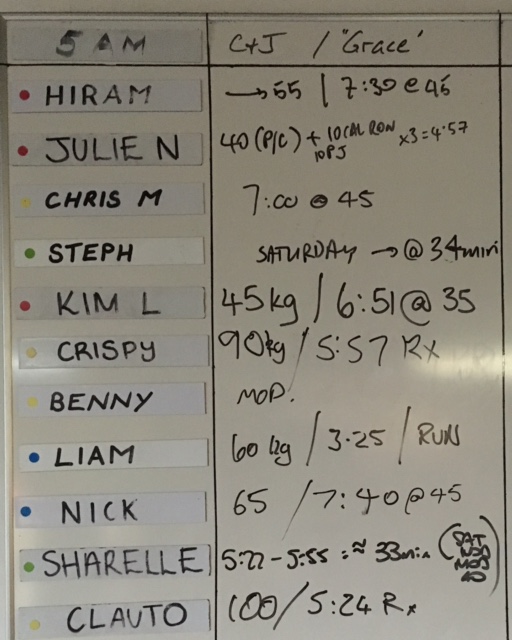 5 AM C+J / "Grace"
HIRAM → 55 | 7:30 @ 45
JULIE N 40 (P/C) + 10 CAL ROW 10 PJ x3 = 4:57
CHRIS M 7:00 @ 45
STEPH SATURDAY → @ 34min
KIM L 45kg / 6:51 @ 35
CRISPY 90kg / 5:57 Rx
BENNY MOD.
LIAM 60 kg / 3.25 / RUN
NICK 65 / 7:40 @ 45
SHARELLE 5:22 - 5:55 = ≈ 33min (SAT MOD 40)
CLAUTO 100 / 5:24 Rx